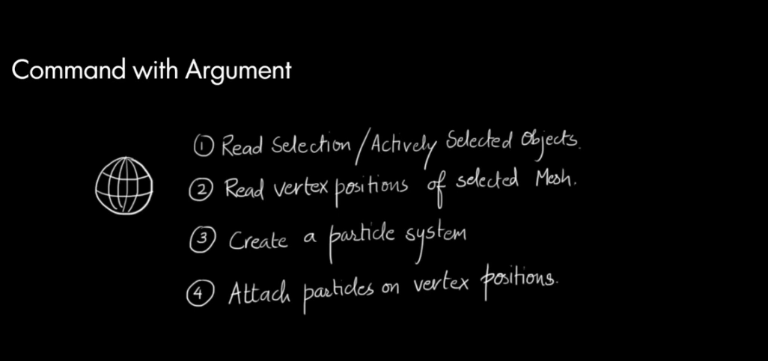 Command with Argument
① Read Selection/Actively Selected Objects.
② Read vertex positions of selected Mesh.
③ Create a particle system
④ Attach particles on vertex positions.